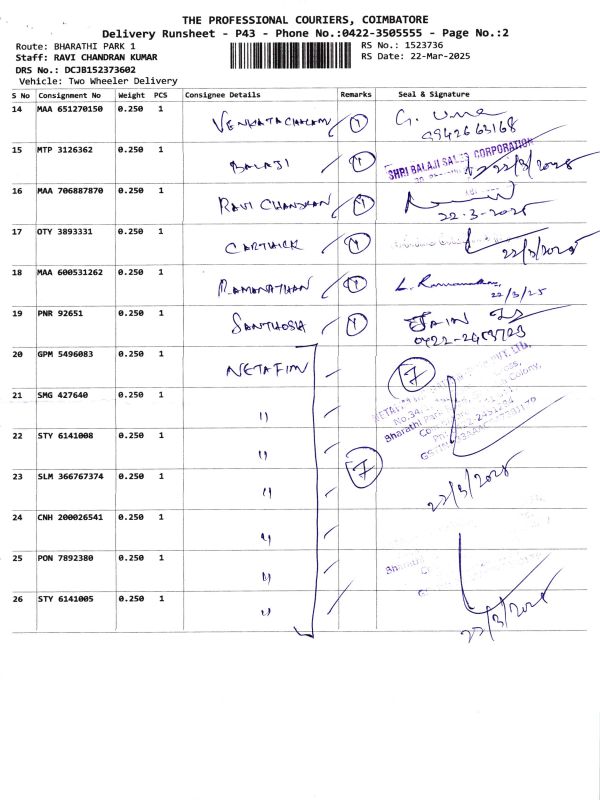 THE PROFESSIONAL COURIERS, COIMBATORE
Delivery Runsheet - P43 - Phone No.:0422-3505555 - Page No.:2
Route: BHARATHI PARK 1
RS No.: 1523736
Staff: RAVI CHANDRAN KUMAR
RS Date: 22-Mar-2025
DRS No.: DCJB152373602
Vehicle: Two Wheeler Delivery
S No Consignment No Weight PCS Consignee Details Remarks Seal & Signature
14 MAA 651270150 0.250 1 VENKATACHALAM 1 G. Uma
9942663168
15 MTP 3126362 0.250 1 BALAJI 1 SHRI BALAJI SALES CORPORATION
22/3/2025
16 MAA 706887870 0.250 1 RAVI CHANDRAN 1
22-3-2025
17 OTY 3893331 0.250 1 CARTHICK 1
22/3/2025
18 MAA 600531262 0.250 1 RAMANATHAN 1 L. Ramanathan
22/3/25
19 PNR 92651 0.250 1 SANTHOSH 1 JAIN
20 GPM 5496083 0.250 1 NETAFIM 7
21 SMG 427640 0.250 1 11
Bharathi Park
22 STY 6141008 0.250 1 11
23 SLM 366767374 0.250 1 11 7
22/3/2025
24 CNH 200026541 0.250 1 11
25 PON 7892380 0.250 1 11
26 STY 6141005 0.250 1 11
22/3/2025